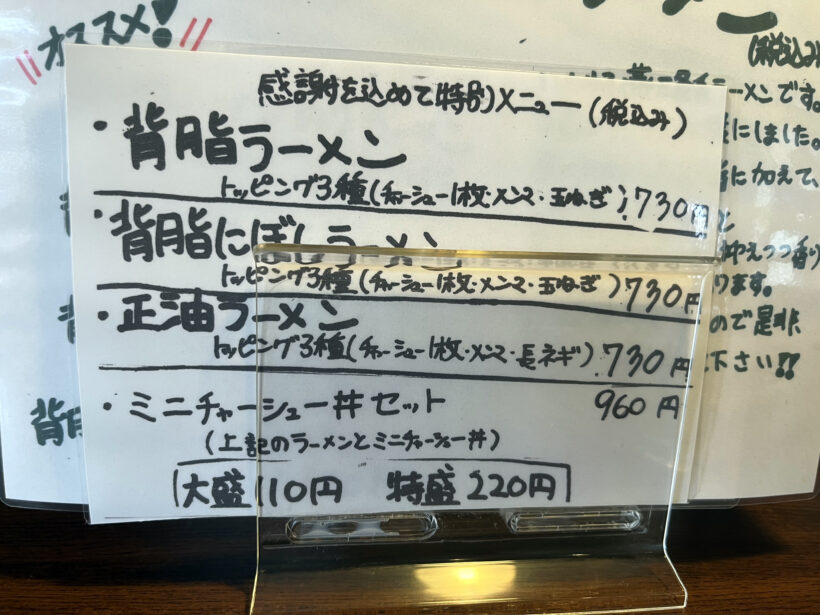 オススメ!
(税込み)
感謝を込めて特別メニュー(税込み)
・背脂ラーメン
トッピング3種(チャーシュー1枚・メンマ・玉ねぎ) 730円
・背脂にぼしラーメン
トッピング3種(チャーシュー1枚・メンマ・玉ねぎ) 730円
・正油ラーメン
トッピング3種(チャーシュー1枚・メンマ・長ネギ) 730円
・ミニチャーシュー丼セット 960円
(上記のラーメンとミニチャーシュー丼)
大盛110円 特盛220円
ーメンです。
にしました。
に加えて、
ります。
ので是非
下さい!!